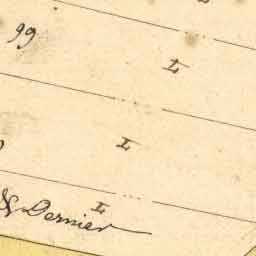 99
L
L
L
& Dernier